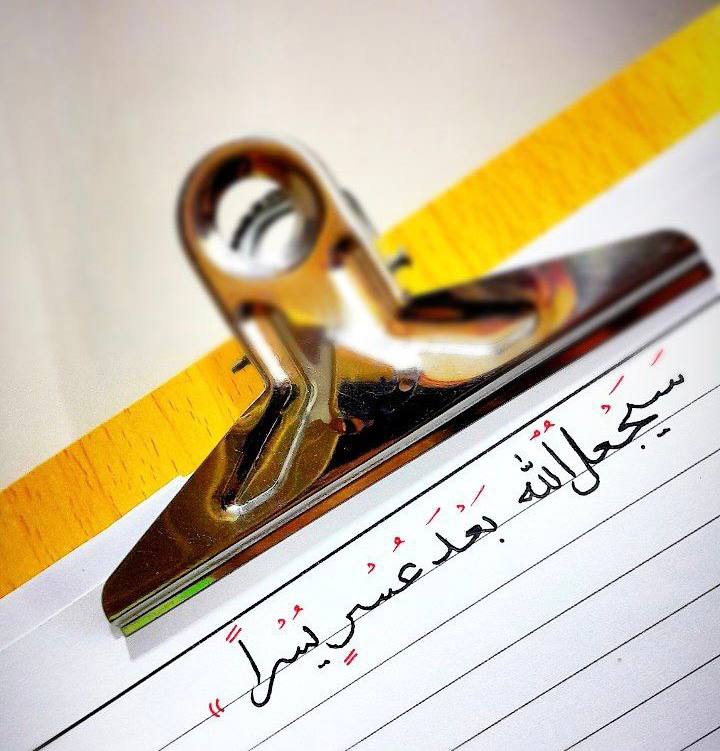 سَيَجْعَلُ اللَّهُ بَعْدَ عُسْرٍ يُسْرًا "